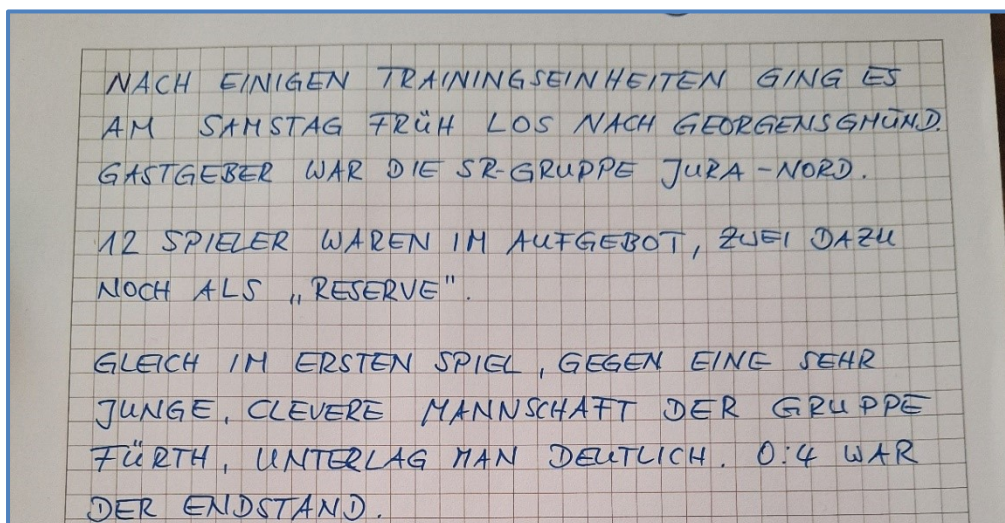 NACH EINIGEN TRAININGSEINHEITEN GING ES
AM SAMSTAG FRÜH LOS NACH GEORGENSGMÜND.
GASTGEBER WAR DIE SR-GRUPPE JURA-NORD.
12 SPIELER WAREN IM AUFGEBOT, ZWEI DAZU
NOCH ALS „RESERVE".
GLEICH IM ERSTEN SPIEL, GEGEN EINE SEHR
JUNGE, CLEVERE MANNSCHAFT DER GRUPPE
FÜRTH, UNTERLAG MAN DEUTLICH. 0:4 WAR
DER ENDSTAND.